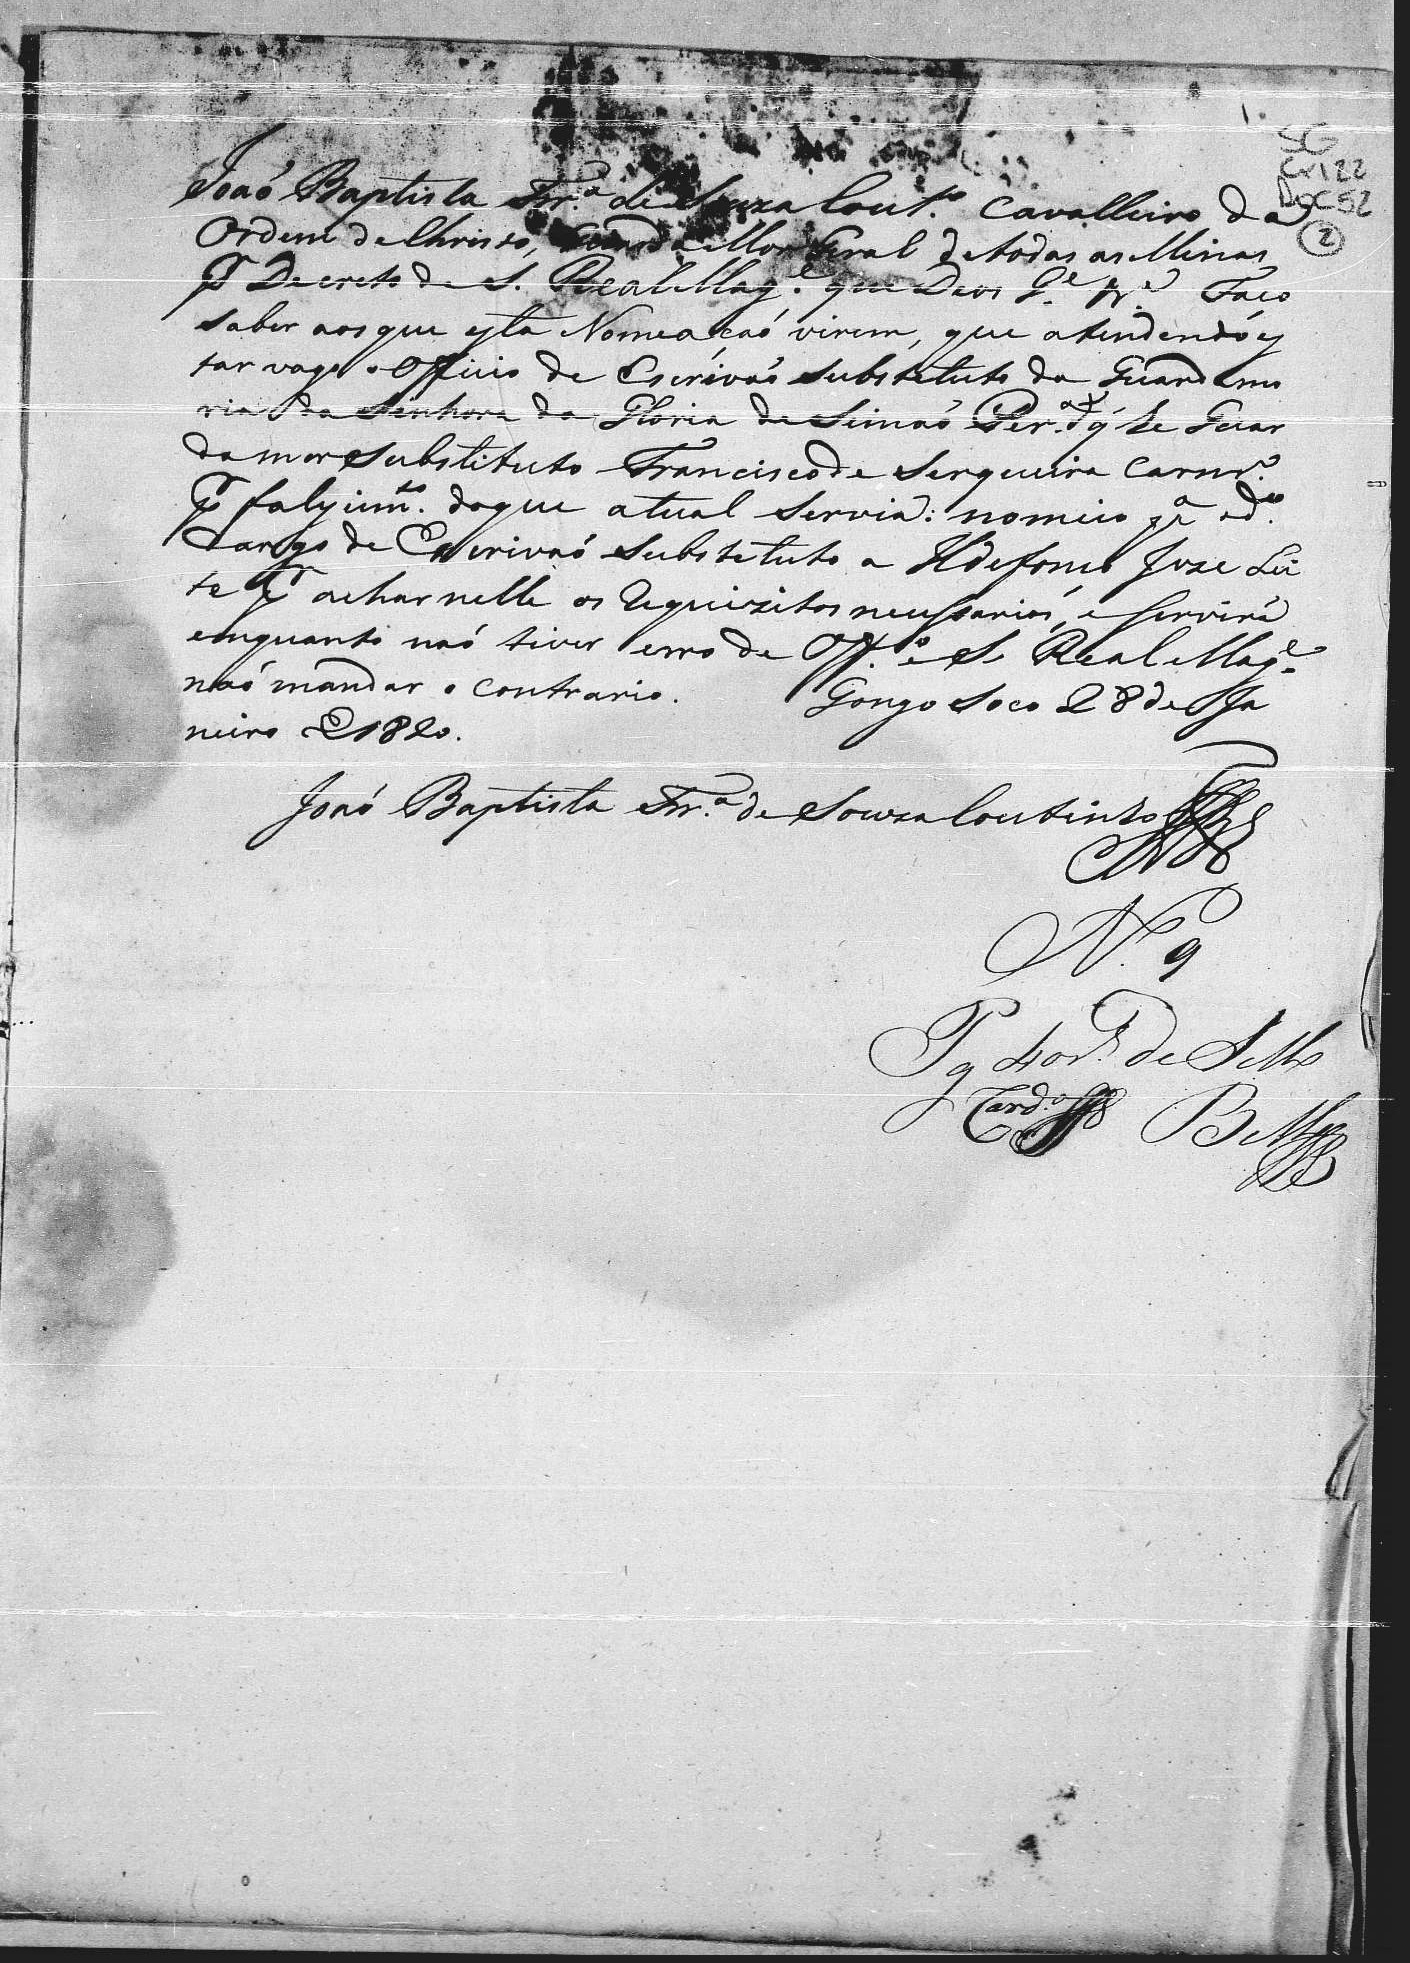 SG
Cx122
Doc 52
2
Joaó Baptista Frr.ª de Souza Cout.º Cavalleiro da
Ordem de Christo, Guarda Mor Geral de todas as Minas
p.r Decreto de S. Real Mag.e que Deos G.e &.ª Faco
saber aos que esta Nomeacaó virem, que atendendo es
tar vago o Officio de Escrivaó substituto da Guardamo
ria da Senhora da Gloria de Simaó Per.ª dq' he Guar
damor substituto Francisco de Serqueira Carnr.º
p.r falscim.to do que atual servia: nomeio p.ª o d.º
Cargo de Escrivaó substetuto a Ildefonco Joze Lei
te p.r achar nelle os Requizitos necessarios, e servirá
emquanto naó tiver erro de Off.º e S. Real Mag.e
naó mandar o contrario. Gongo Soco 28 de Ja
neiro de 1820.
Joaó Baptista Frr.ª de Souza Coutinho
N.º 9
Pg 40 r.s de Sello
Card.º B M